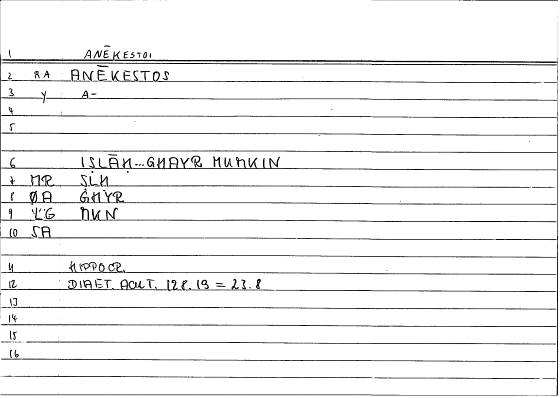 1 ANĒKESTOI
2 RA ANĒKESTOS
3 Y A-
4
5
6 IṢLĀḤ...GHAYR MUMKIN
7 MR ṢLḤ
8 ØA ĠHYR
9 LG MKN
10 SA
11 HIPPOCR.
12 DIAET. ACUT. 128.19 = 23.8
13
14
15
16